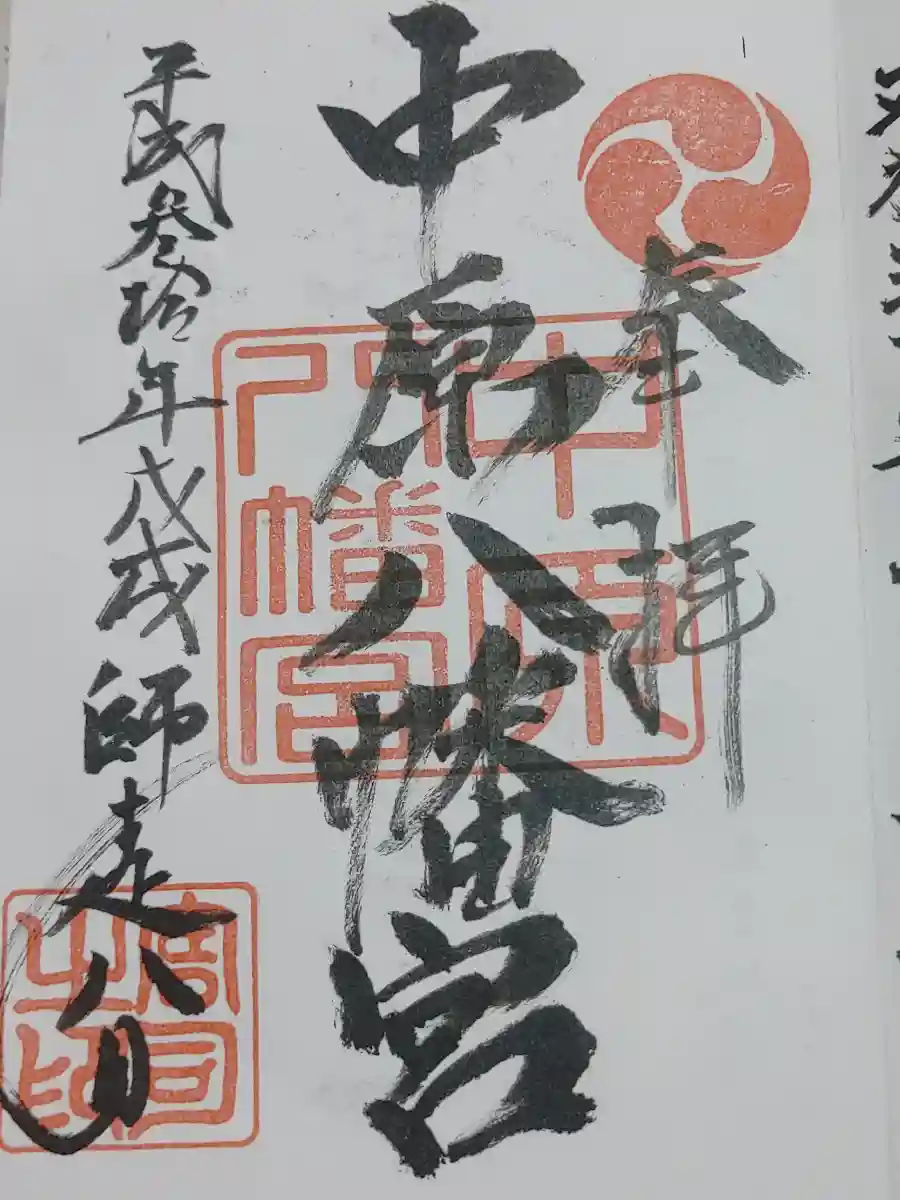 奉拝
中原八幡宮
中原八幡宮
平成叁拾年戊戌師走八日
宮司之印